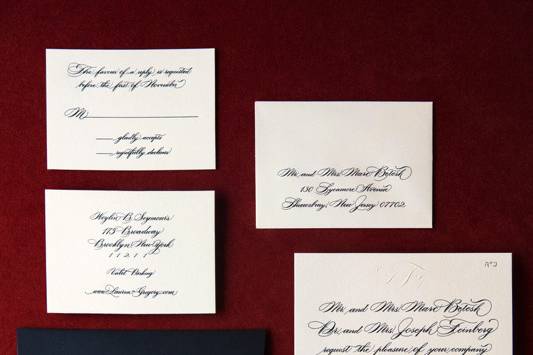 The favour of a reply is requested
before the first of November
M
gladly accepts
regretfully declines
Weylin B. Seymour's
175 Broadway
Brooklyn New York
11211
Valet Parking
www.LaurenandGregory.com
Mr. and Mrs. Marc Betesh
130 Sycamore Avenue
Shrewsbury, New Jersey 07702
Mr. and Mrs. Marc Betesh
Dr. and Mrs. Joseph Feinberg
request the pleasure of your company